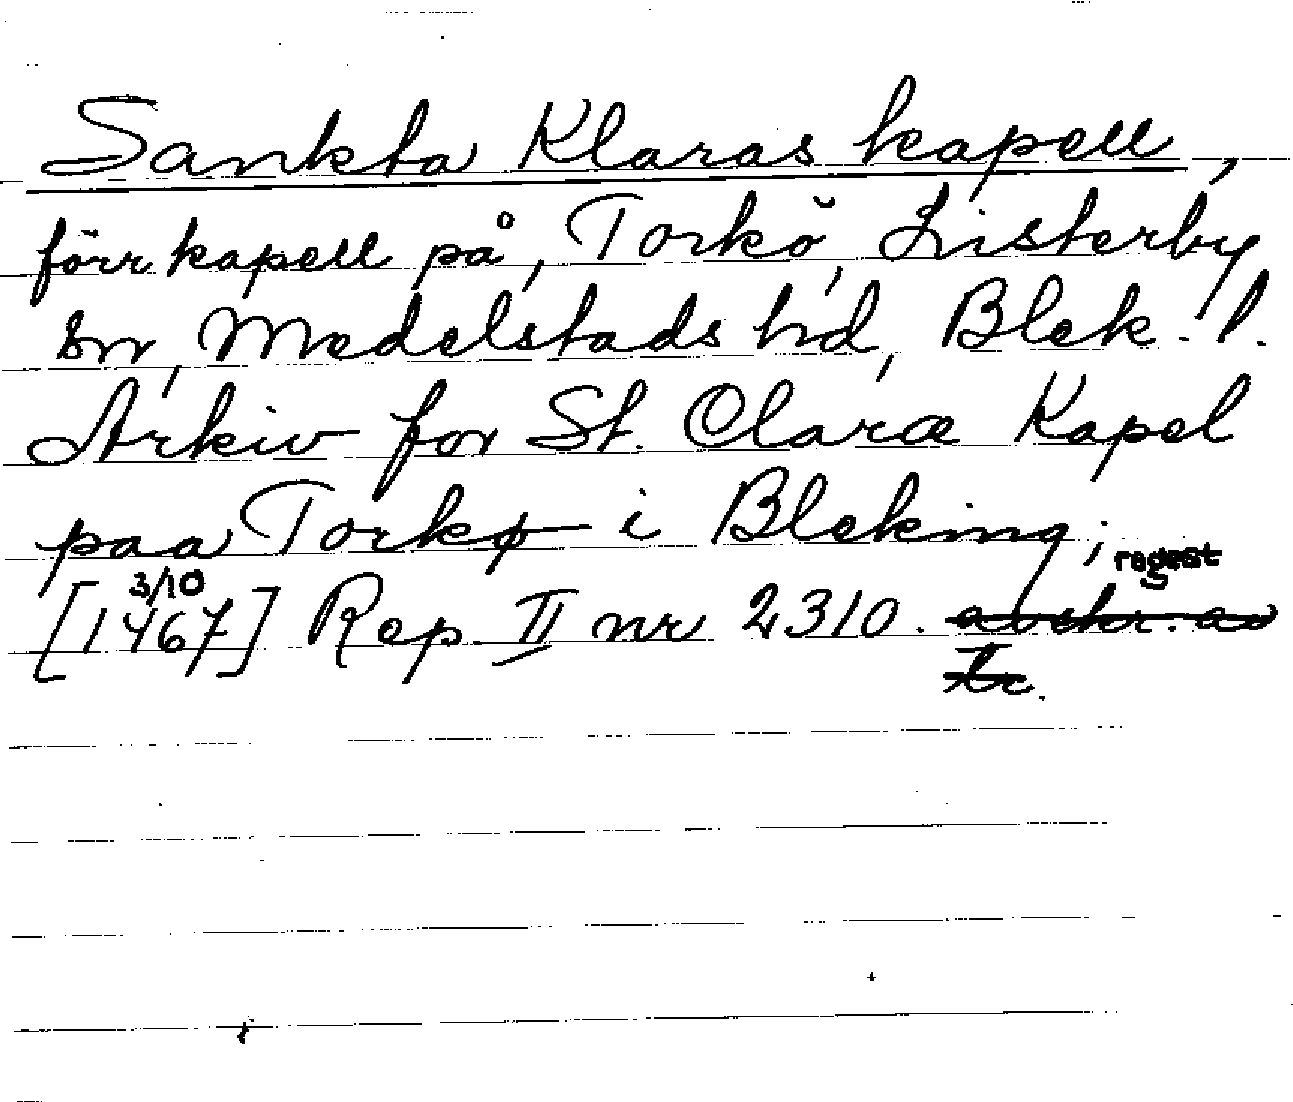 Sankta Klaras kapell,
förr kapell på, Torkö, Listerby
sn, Medelstads hd, Blek. l.
Arkiv for St. Claræ Kapel
paa Torkø i Bleking;
regest
3/10
[1467] Rep. II nr 2310. avskr. av
tr.